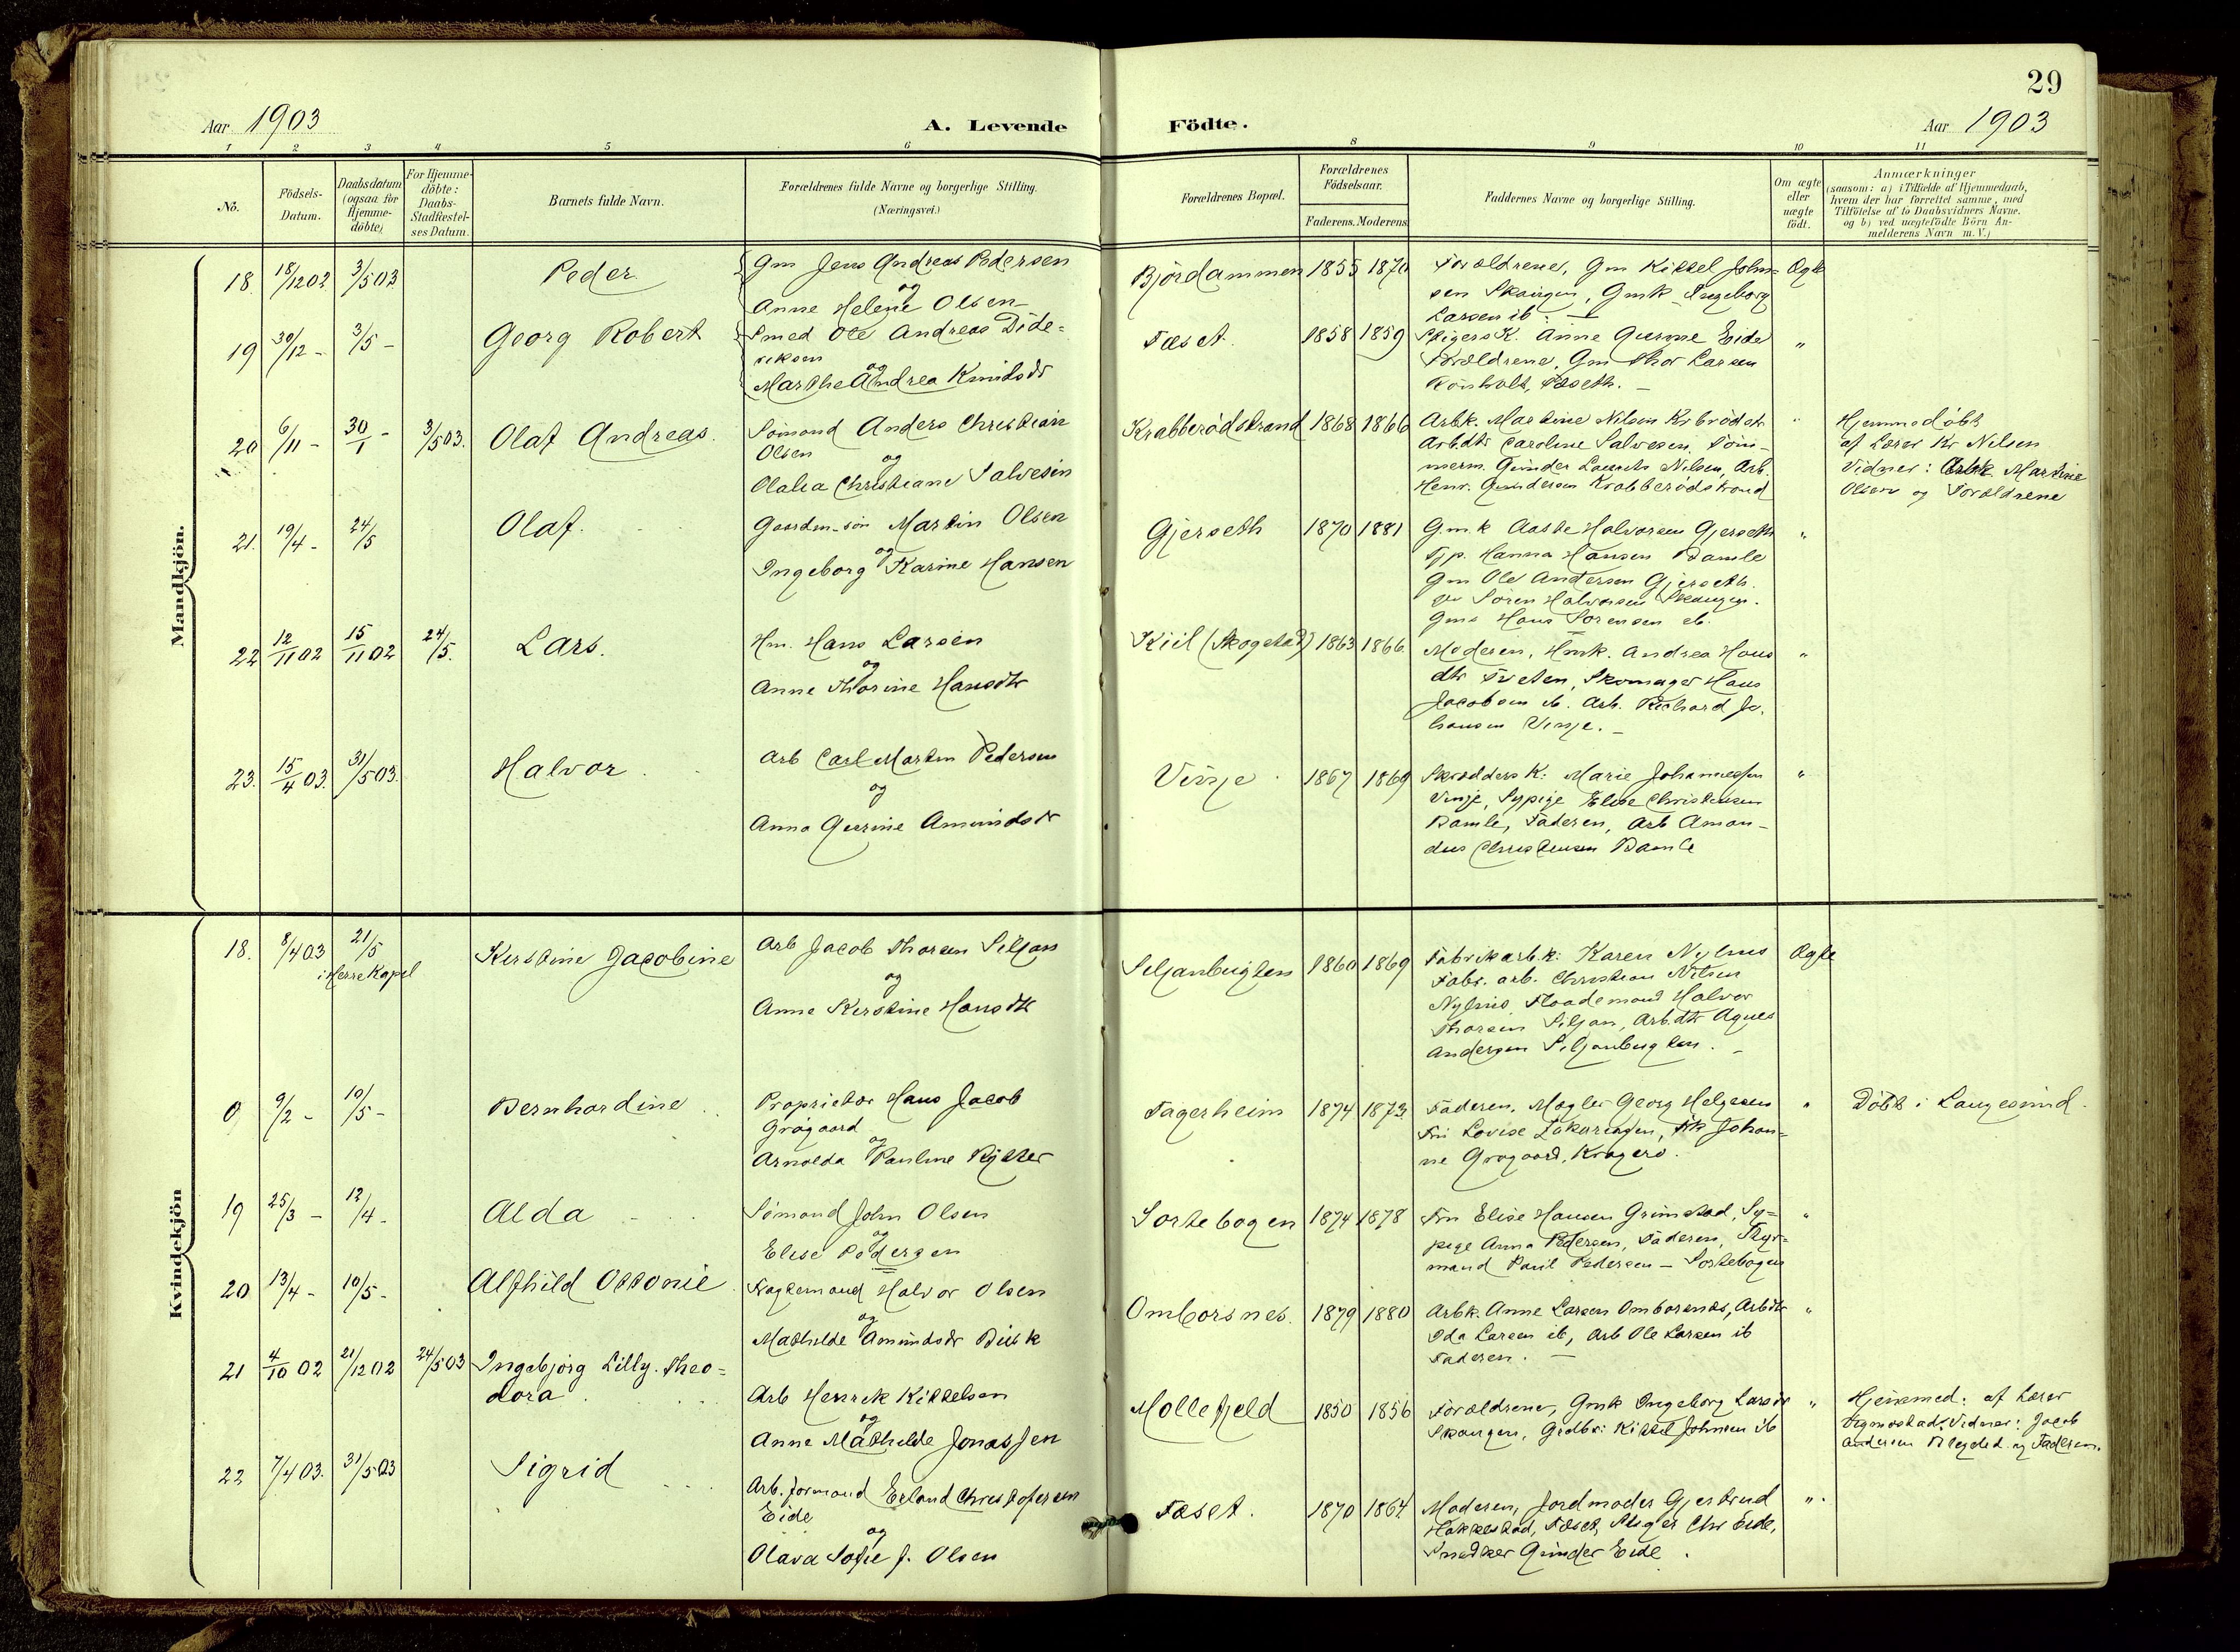 29
Aar 1903
A. Levende Födte.
Aar 1903
1 2 3 4 5 6 8 9 10 11
No.
Födsels-Datum.
Daabsdatum (ogsaa for Hjemme-döbte)
For Hjemme-döbte: Daabs-Stadfæstel-ses Datum.
Barnets fulde Navn.
Forældrenes fulde Navne og borgerlige Stilling.
(Næringsvei.)
Forældrenes Bopæl.
Forældrenes Födselsaar.
Faderens. Moderens.
Faddernes Navne og borgerlige Stilling.
Om ægte eller uægte født.
Anmærkninger
(saasom: a) i Tilfælde af Hjemmedaab,
hvem der har forrettet samme, med
Tilföielse af to Daabsvidners Navne.
og b) ved uægtefödte Börn An-
melderens Navn m. V.)
Mandkjön.
18. 18/12 02 3/5 03. Peder
Gm Jens Andreas Pedersen
og
Anne Helene Olsen
Björdammen 1855 1870
Forældrene, Gm Kittel John-
sen Skougen, Gmk Ingeborg
Larsen ib.
Ægte
19 30/12 - 3/5 - Georg Robert
Smed Ole Andreas Dide-
riksen
og
Marthe Andrea Knudsdr
Fæset. 1858 1859
Stigers K. Anne Gurine Eide
Forældrene, Gm Thor Larsen
Rönholt, Fæseth.
"
20 6/11 - 30/1 - 3/5 03. Olaf Andreas.
Sömand Anders Christian
Olsen
og
Olalia Christiane Salvesen
Krabberödstrand 1868 1866
Arbk. Martine Nilsen Krbrödstr
Arbdtr Caroline Salvesen, Töm-
merm. Gunder Laurits Nilsen, Arb.
Henr. Gundersen Krabberödstrand
"
Hjemmedöbt
af Lærer Kr Nilsen
Vidner: Arbk. Martine
Olsen og Forældrene
21. 19/4 - 24/5 Olaf.
Gaardm.sön Martin Olsen
og
Ingeborg Karine Hansen
Gjerseth 1870 1881
G.m.k Aaste Halvorsen Gjerseth
Tjp. Hanna Hansen Bamle
Gm Ole Andersen Gjerseth.
Gm Sören Halvorsen Skougen.
Gms Hans Sörensen ib.
"
22 12/11 02 15/11 02 24/5. Lars.
Hm. Hans Larsen
og
Anne Thorine Hansdtr
Kiil (Skogstad) 1863 1866.
Moderen, Hmk. Andrea Hans
dtr Tveten, Skomager Hans
Jacobsen ib. Arb. Richard Jo-
hansen Vinje.
"
23. 15/4 03. 31/5 03. Halvor
Arb Carl Martin Pedersen
og
Anna Gurine Amundsdr
Vinje 1867 1869
Skrædders K: Marie Johannessen
Vinje, Sypige Elise Christensen
Bamle, Faderen, Arb Aman-
dus Christensen Bamle
"
Kvindekjön
18. 8/4 03 21/5 i Herre Kapel Kirstine Jacobine
Arb Jacob Thorsen Siljan
og
Anne Kirstine Hansdtr
Siljanbugten 1860 1869
Fabrikarb.k: Karen Nylius
Fabr. arb. Christian Nilsen
Nylius, Flaademand Halvor
Thorsen Siljan, Arb.dtr Agnes
Andersen Siljanbugten.
Ægte
0 9/2 - 10/5 - Bernhardine
Proprietær Hans Jacob
Grøgaard
og
Arnolda Pauline Rytter
Fagerheim 1874 1873
Faderen, Mægler Georg Helgesen
Fru Lovise Zakariasen, Frk Johan-
ne Grøgaard, Kragerö.
"
Döbt i Langesund.
19 25/3 - 12/4 - Alda
Sömand John Olsen
og
Elise Pedersen
Sortebogen 1874 1878
Fru Elise Hansen Grimstad, Sy-
pige Anna Pedersen, Faderen, Styr-
mand Poul Pedersen - Sortebogen
"
20 13/4 - 10/5 - Alfhild Ottonie
Fragtemand Halvor Olsen
og
Mathilde Amundsdr Bisk
Omborsnes. 1879 1880
Arbk. Anne Larsen Omborsnes, Arbdtr
Oda Larsen ib, Arb Ole Larsen ib
Faderen.
"
21 4/10 02 21/12 02 24/5 03 Ingebjørg Lilly Theo-
dora
Arb Henrik Kittelsen
og
Anne Mathilde Jonassen
Mollefjeld 1850 1856
Forældrene, Gmk Ingeborg Larsdr
Skougen, Grdbr: Kittel Johnsen ib
"
Hjemmed: af Lærer
Vidner: Jacob
Andersen og Faderen.
22 7/4 03. 31/5 03 Sigrid
Arb. formand Erland Christofersen
Eide
og
Olava Sofie J. Olsen
Fæset. 1870 1864
Moderen, Jordmoder Gjertrud
Hakkestad, Fæset, Stiger Chr Eide,
Snedker Gunder Eide.
"